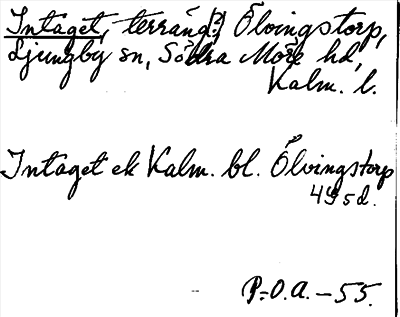 Intaget, terräng[?] Ölvingstorp,
Ljungby sn, Södra Möre hd,
Kalm. l.
Intaget ek Kalm. bl. Ölvingstorp
4G5d.
P.-O.A. - 55.